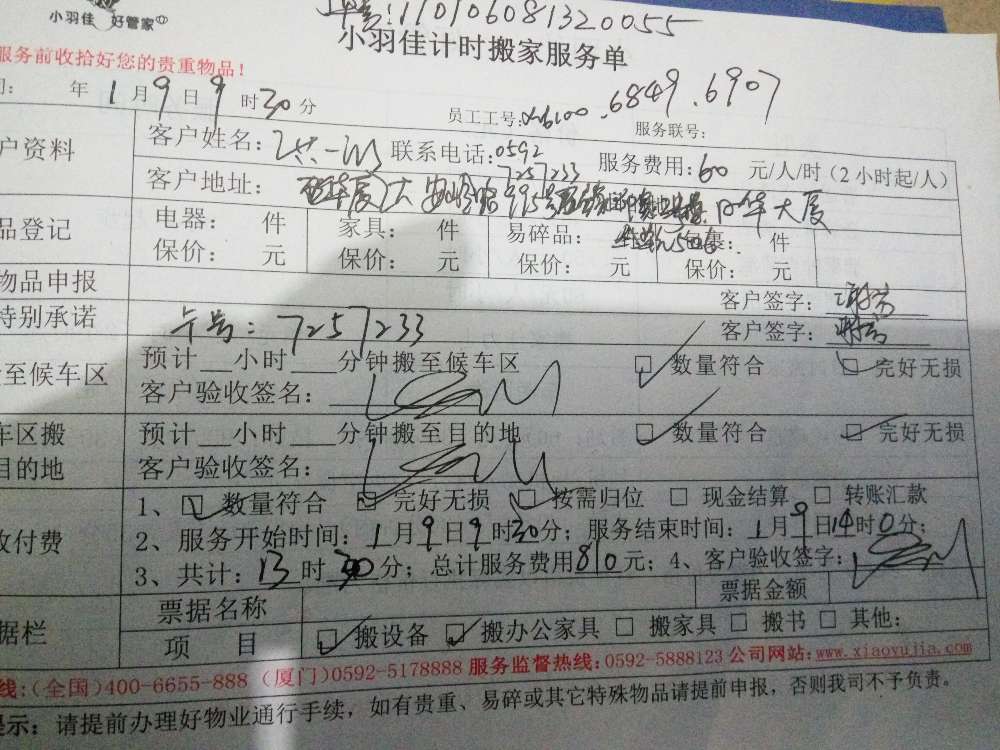 小羽佳 好管家
单号:110106081320055
小羽佳计时搬家服务单
服务前收拾好您的贵重物品！
年1月9日9时30分 员工工号: 6849.6907 服务联号:
户资料 客户姓名: 联系电话:0592 7257233 服务费用:60元/人/时(2小时起/人)
客户地址: 日华大厦
品登记 电器: 件 家具: 件 易碎品: 包裹: 件
保价: 元 保价: 元 保价: 元 保价: 元
物品申报 客户签字:
特别承诺 卡号:7257233 客户签字:
至候车区 预计__小时___分钟搬至候车区 数量符合 完好无损
客户验收签名:
车区搬 预计___小时___分钟搬至目的地 数量符合 完好无损
目的地 客户验收签名:
收付费 1、数量符合 完好无损 按需归位 现金结算 转账汇款
2、服务开始时间:1月9日9时30分; 服务结束时间:1月9日14时0分;
3、共计:13时30分; 总计服务费用810元; 4、客户验收签字:
据栏 票据名称 票据金额
项 目 搬设备 搬办公家具 搬家具 搬书 其他:
线:(全国)400-6655-888 (厦门)0592-5178888 服务监督热线:0592-5888123 公司网站:www.xiaoyujia.com
提示: 请提前办理好物业通行手续，如有贵重、易碎或其它特殊物品请提前申报，否则我司不予负责。